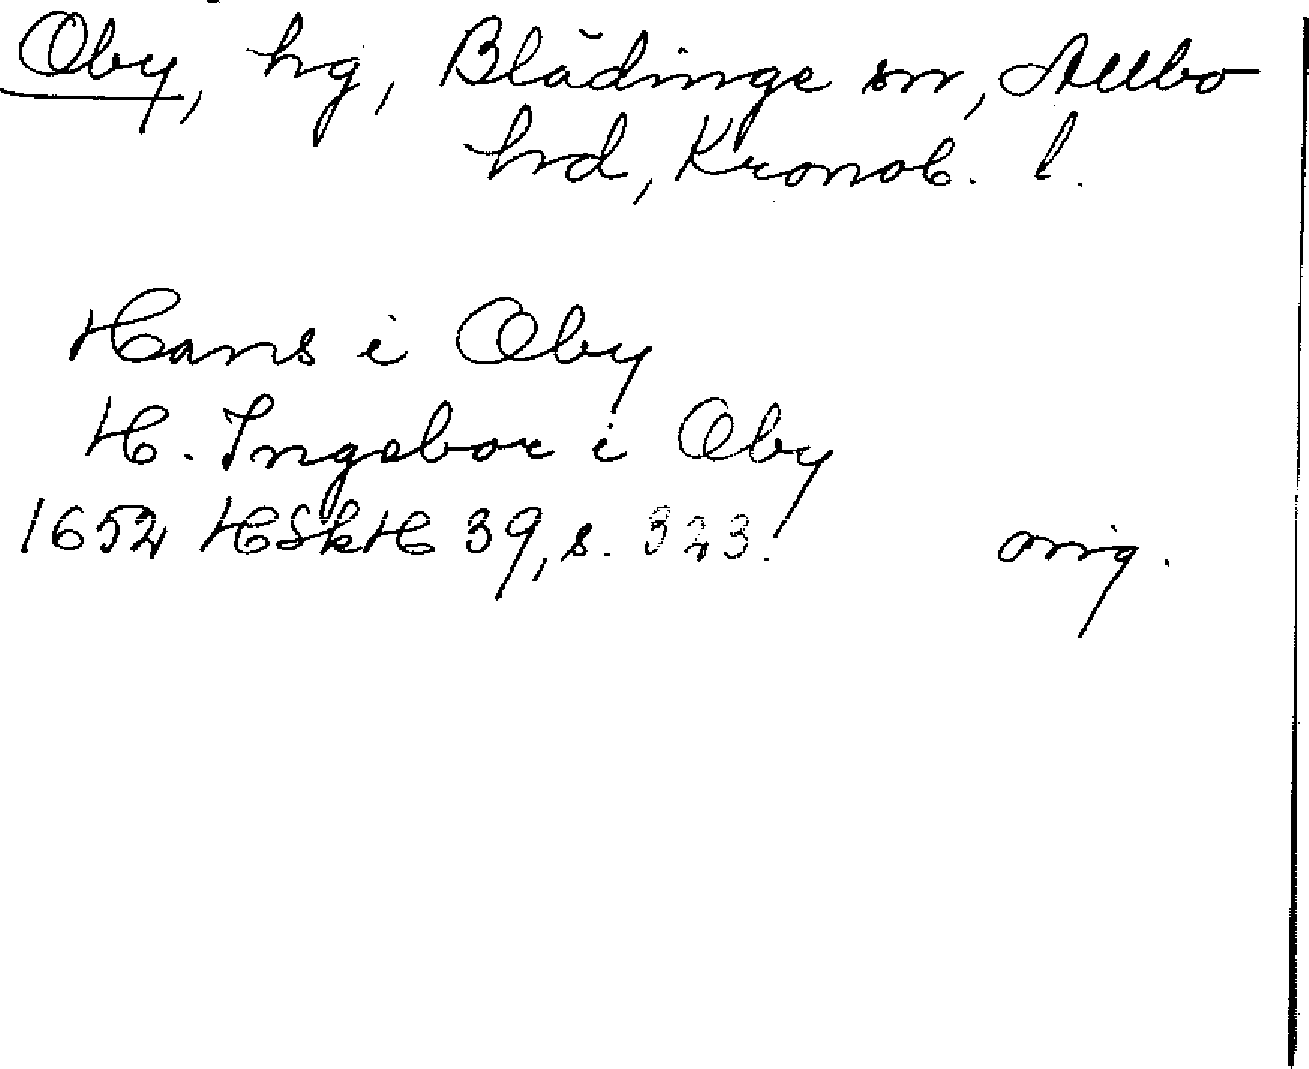 Oby, hg, Blädinge sn, Allbo
hrd, Kronob. l.
Hans i Oby
H. Ingebor i Oby
1652 HSkH 39, s. 323. orig.